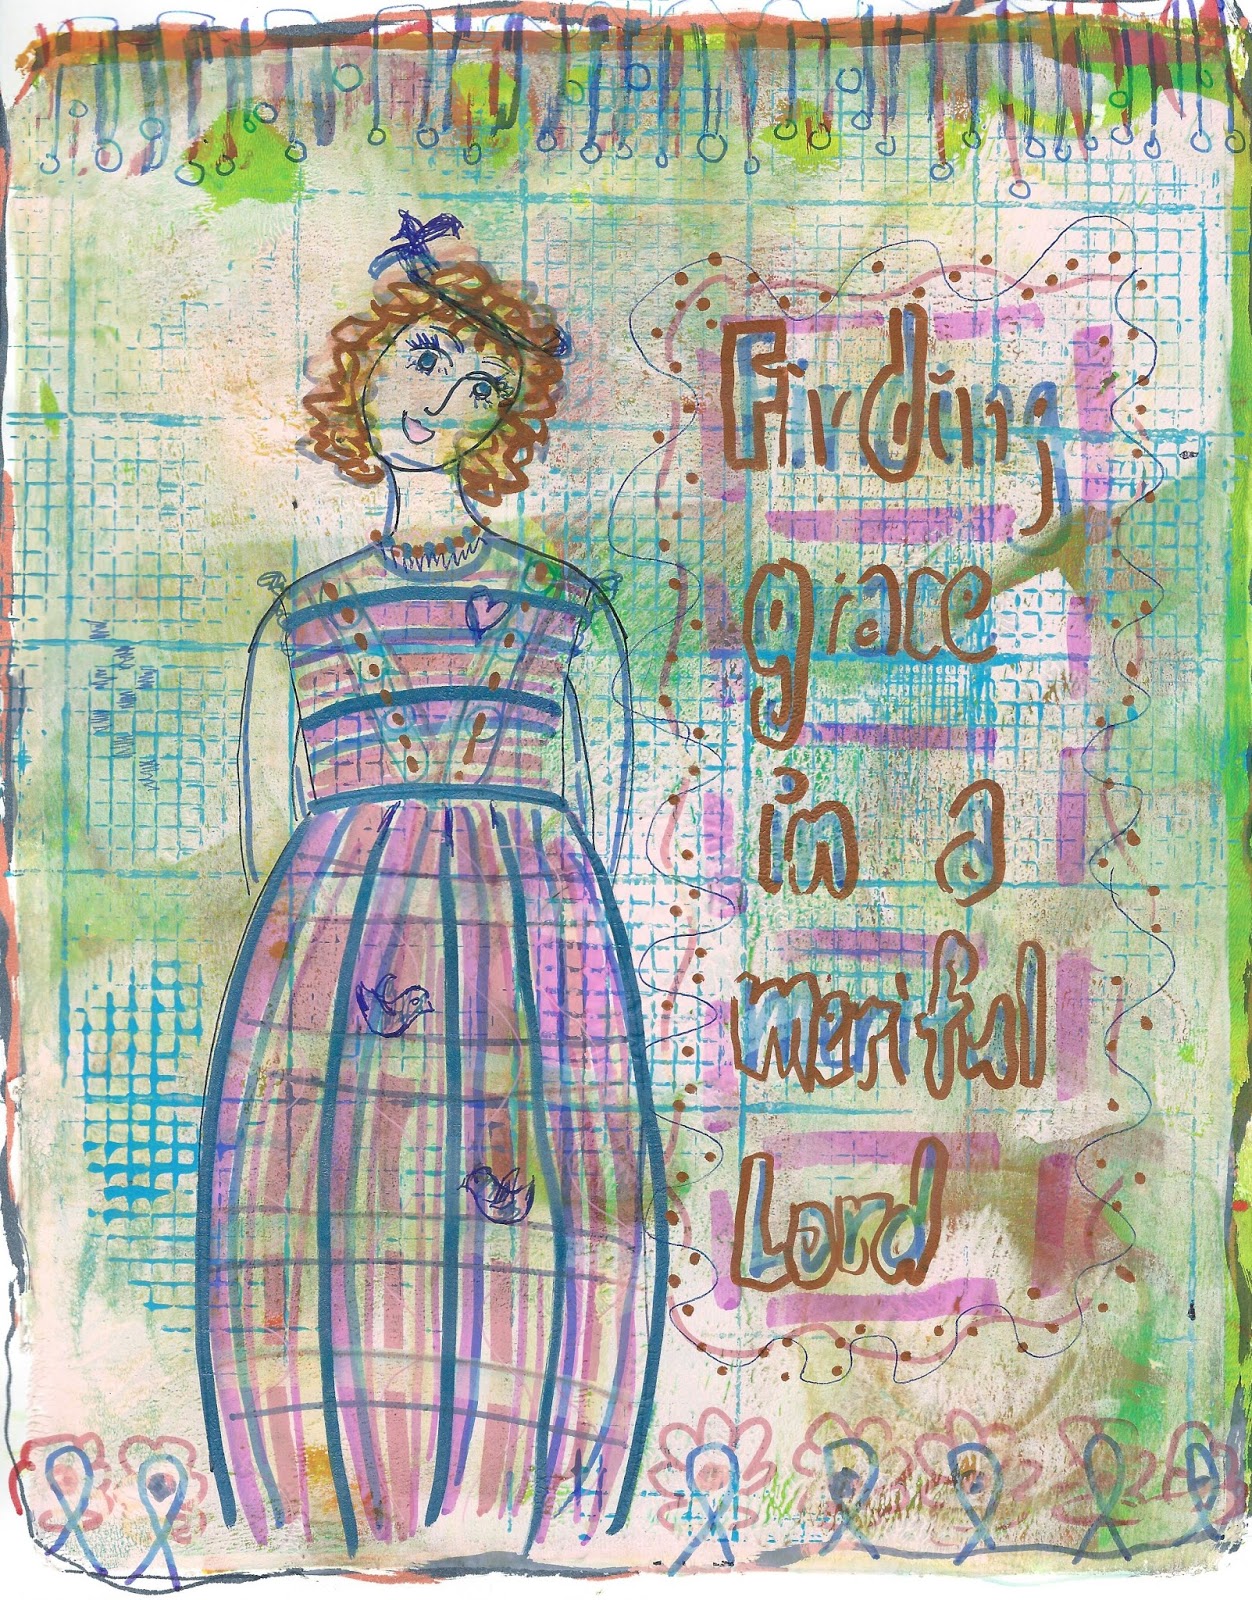 Finding
grace
in a
meriful
Lord